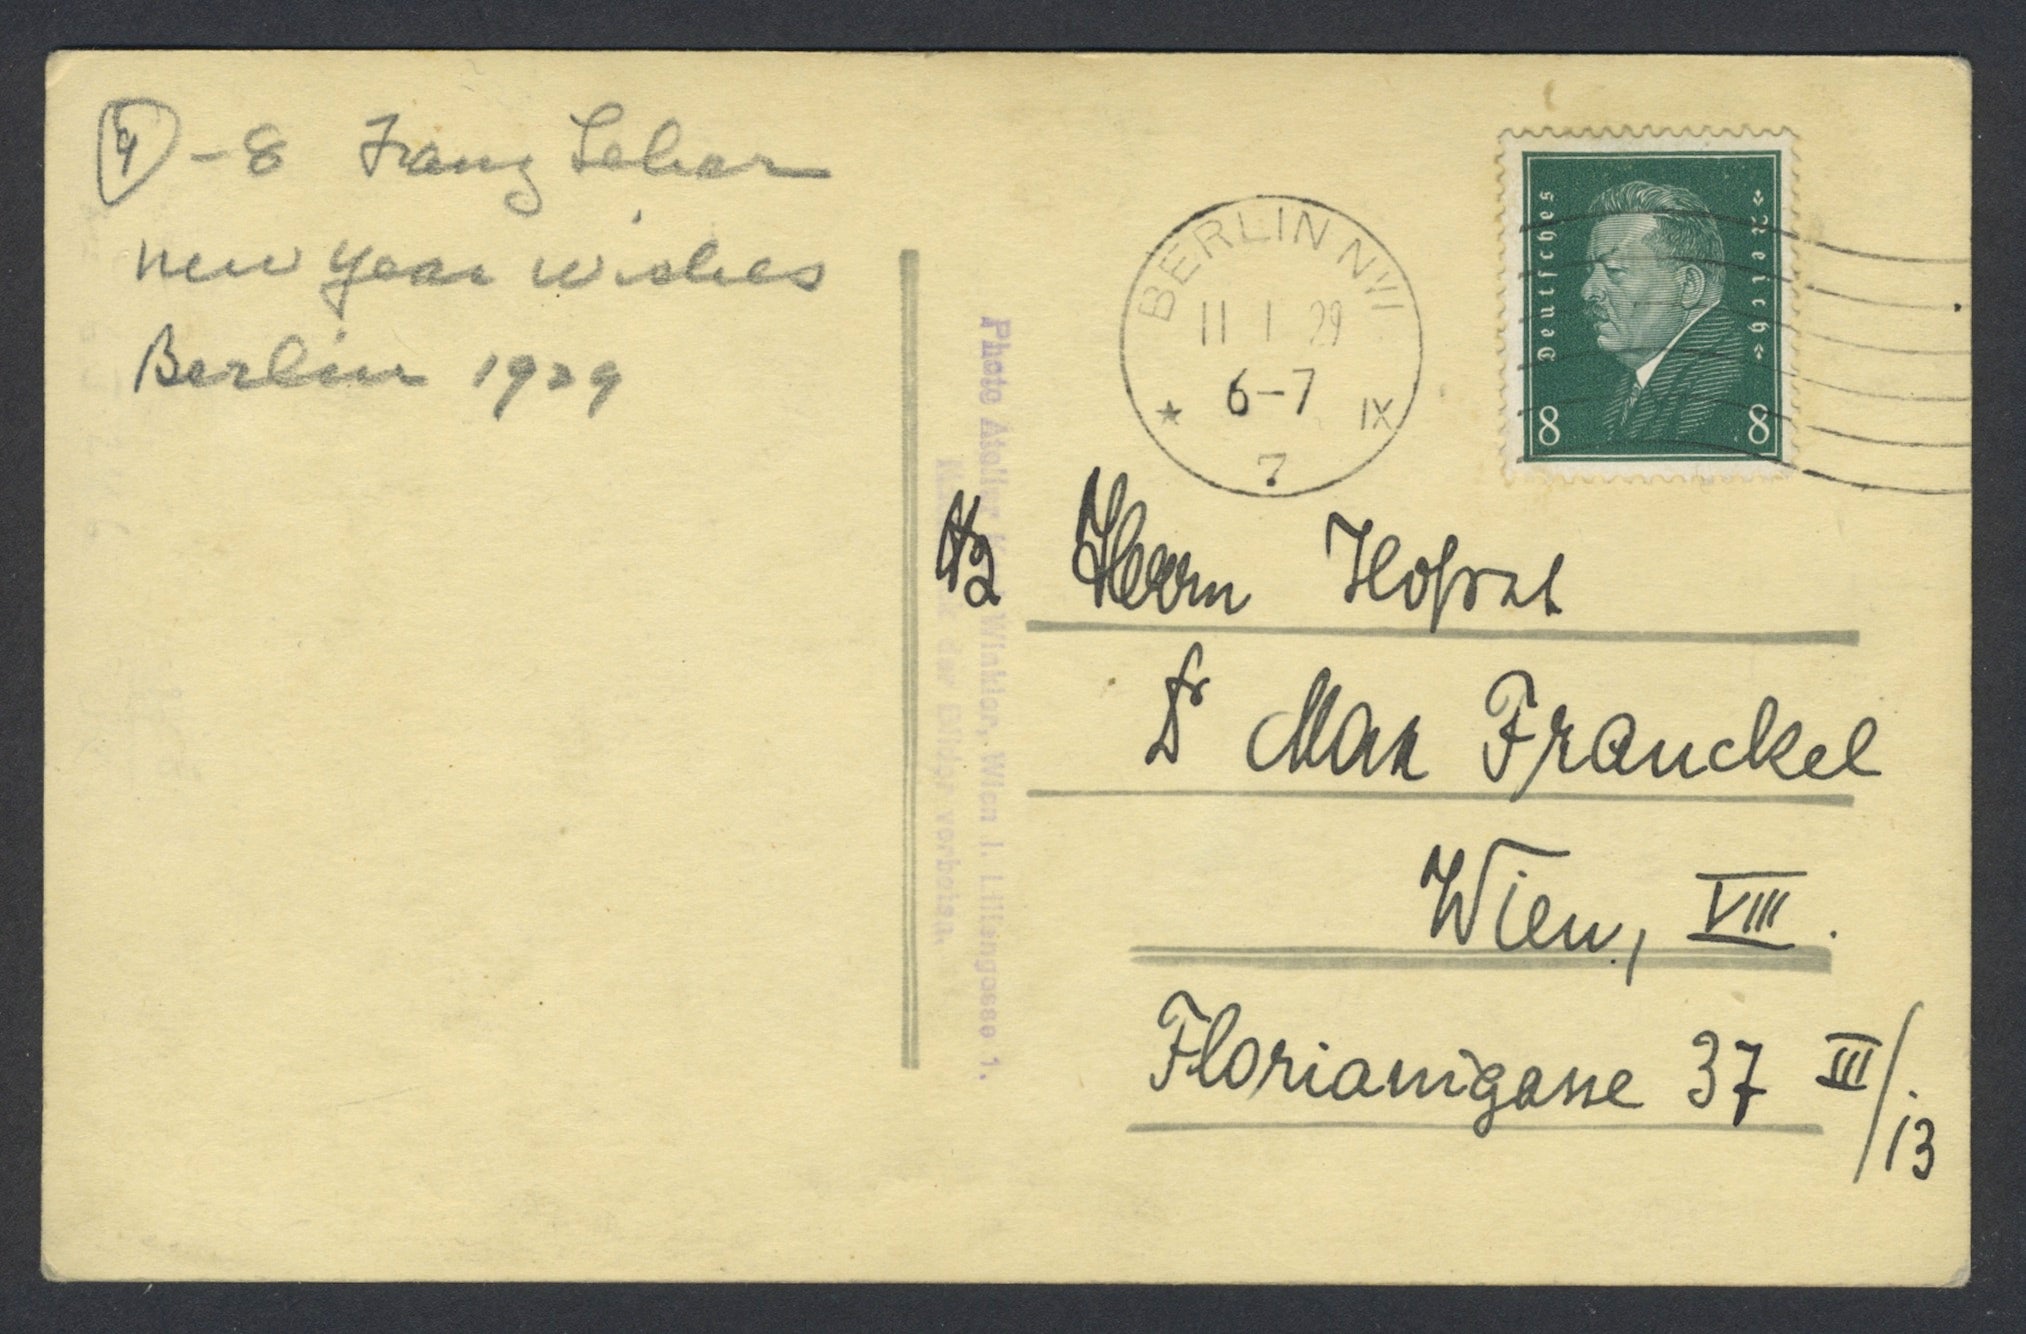 4 - 8 Franz Lehar
new year wishes
Berlin 1929
BERLIN NW
11 1 29
6-7 IX
7
Deutsches Reich
8 8
Photo Atelier Winkler, Wien I. Liliengasse 1.
der Bilder verboten.
Herrn Hofrat
Dr Max Franckel
Wien, VIII.
Florianigasse 37 III/13